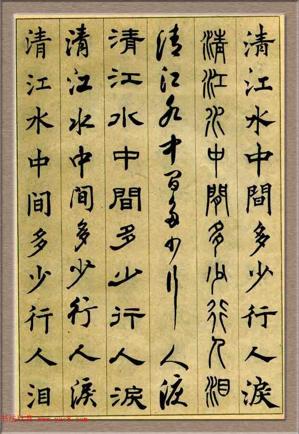 清江水中間多少行人淚
清江水中間多少行人泪
清江水中间多少行人淚
清江水中間多少行人淚
清江水中间多少行人淚
清江水中间多少行人泪